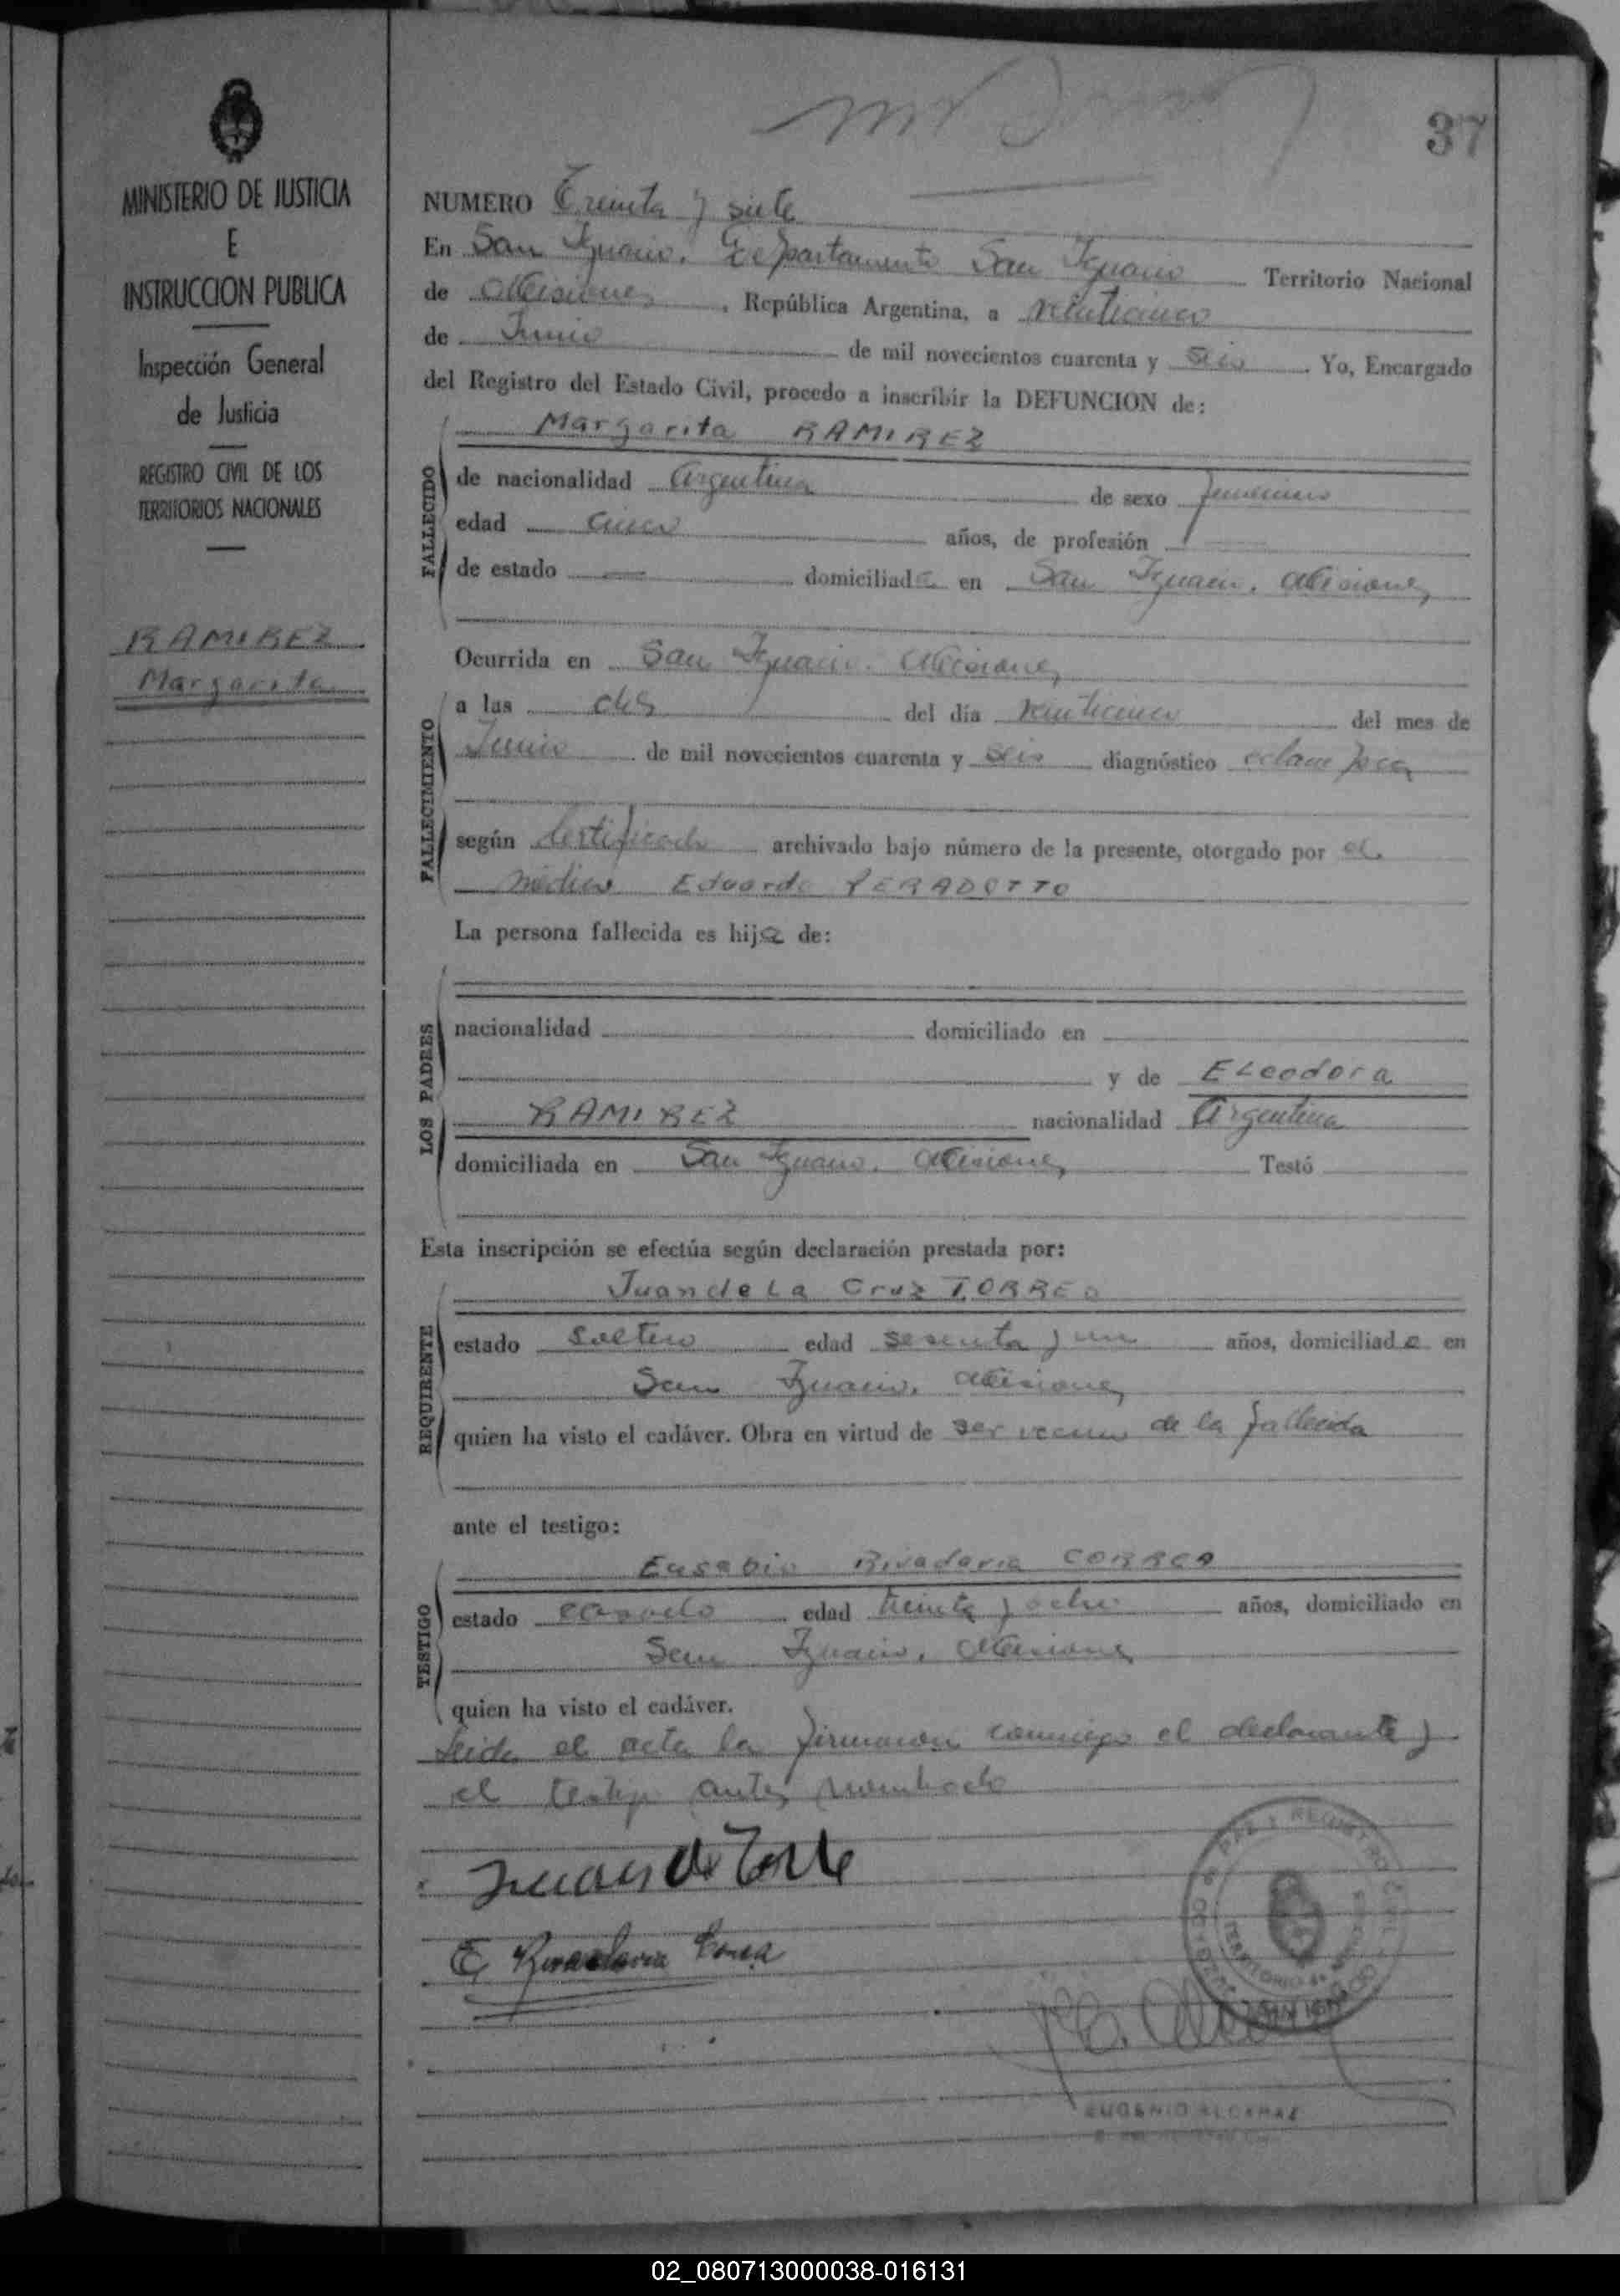 37
MINISTERIO DE JUSTICIA
E
INSTRUCCION PUBLICA
Inspección General
de Justicia
REGISTRO CIVIL DE LOS
TERRITORIOS NACIONALES
RAMIREZ
Margarita
NUMERO Treinta y siete
En San Ignacio. Departamento San Ignacio Territorio Nacional
de Misiones, República Argentina, a veinticinco
de Junio de mil novecientos cuarenta y seis. Yo, Encargado
del Registro del Estado Civil, procedo a inscribir la DEFUNCION de:
Margarita RAMIREZ
FALLECIDO
de nacionalidad Argentina de sexo femenino
edad cinco años, de profesión
de estado — domiciliada en San Ignacio. Misiones
Ocurrida en San Ignacio. Misiones
FALLECIMIENTO
a las dos del día veinticinco del mes de
Junio de mil novecientos cuarenta y seis diagnóstico
según certificado archivado bajo número de la presente, otorgado por el
médico Eduardo PERADOTTO
La persona fallecida es hija de:
LOS PADRES
nacionalidad domiciliado en
y de ELeodora
RAMIREZ nacionalidad Argentina
domiciliada en San Ignacio. Misiones Testó
Esta inscripción se efectúa según declaración prestada por:
Juan de La Cruz TORRES
REQUIRENTE
estado soltero edad sesenta y un años, domiciliado en
San Ignacio. Misiones
quien ha visto el cadáver. Obra en virtud de ser vecino de la fallecida
ante el testigo:
Eusebio Rivadavia CORREA
TESTIGO
estado casado edad treinta y ocho años, domiciliado en
San Ignacio. Misiones
quien ha visto el cadáver.
Leida el acta la firmaron conmigo el declarante y
el testigo antes nombrado
Juan de Torre
E. Rivadavia Correa
PAZ Y REGISTRO CIVIL
TERRITORIO
EUGENIO ALCARAZ
02_080713000038-016131